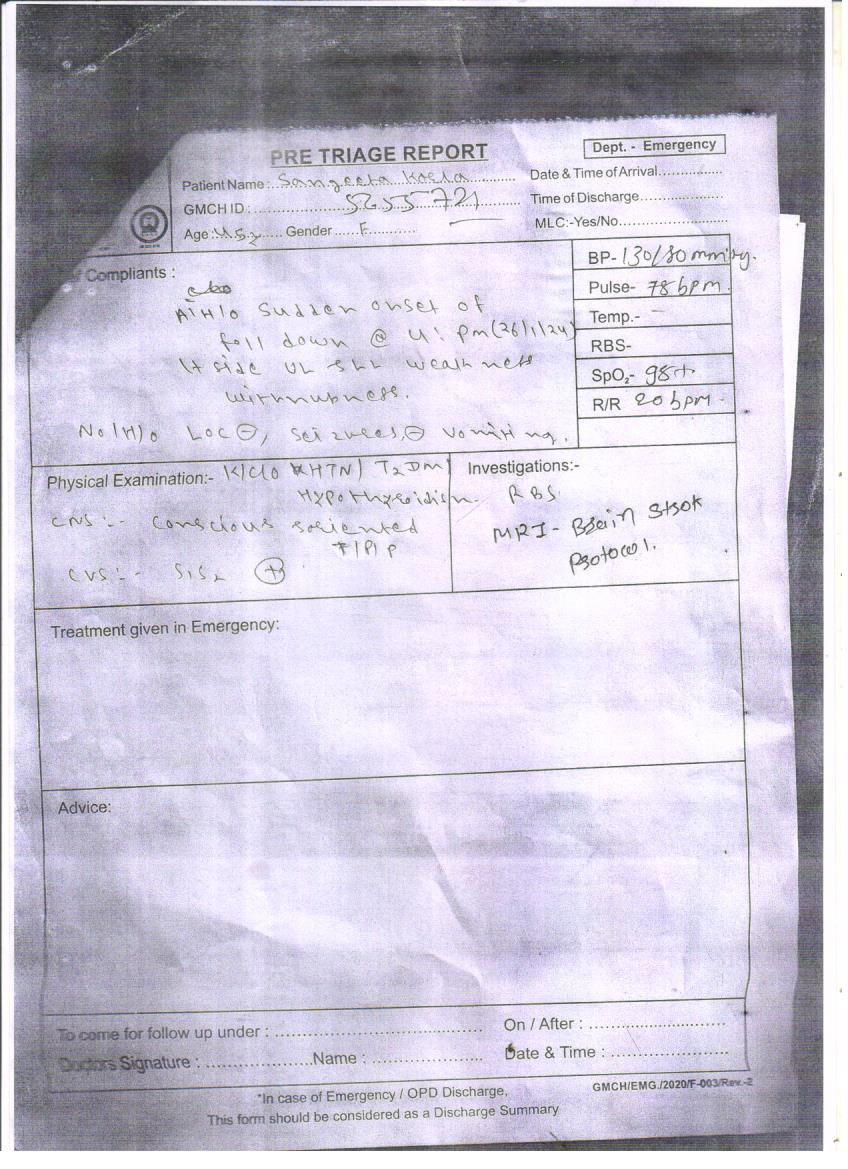 PRE TRIAGE REPORT
Dept. - Emergency
Patient Name: Sangeeta
Date & Time of Arrival
GMCH ID: 5255721
Time of Discharge
Age: Gender F
MLC:-Yes/No
Compliants :
BP- 130/80 mmHg.
c/o
Pulse- 78 bpm.
A/H/O Sudden onset of
Temp.- -
fall down @ 4: pm (26/1/24)
RBS-
Lt side UL & LL weakness
SpO₂- 98
with numbness.
R/R 20 bpm
No/H/o LOC ⊖, seizures ⊖ vomiting.
Physical Examination:- K/C/O HTN / T2DM /
Investigations:-
Hypothyroidism.
RBS
CNS :- Conscious oriented
MRI - Brain Strok
T/P/P
Protocol.
CVS :- S1S2 ⊕
Treatment given in Emergency:
Advice:
To come for follow up under :
On / After :
Doctors Signature : Name :
Date & Time :
*In case of Emergency / OPD Discharge,
GMCH/EMG./2020/F-003/Rev.-2
This form should be considered as a Discharge Summary